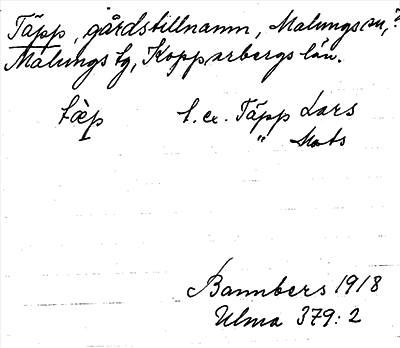 Täpp, gårdstillnamn, Malungs sn,?
Malungs tg, Kopparbergs län.
tæ̀p t. ex. Täpp Lars
" Mats
Bannbers 1918
Ulma 379:2